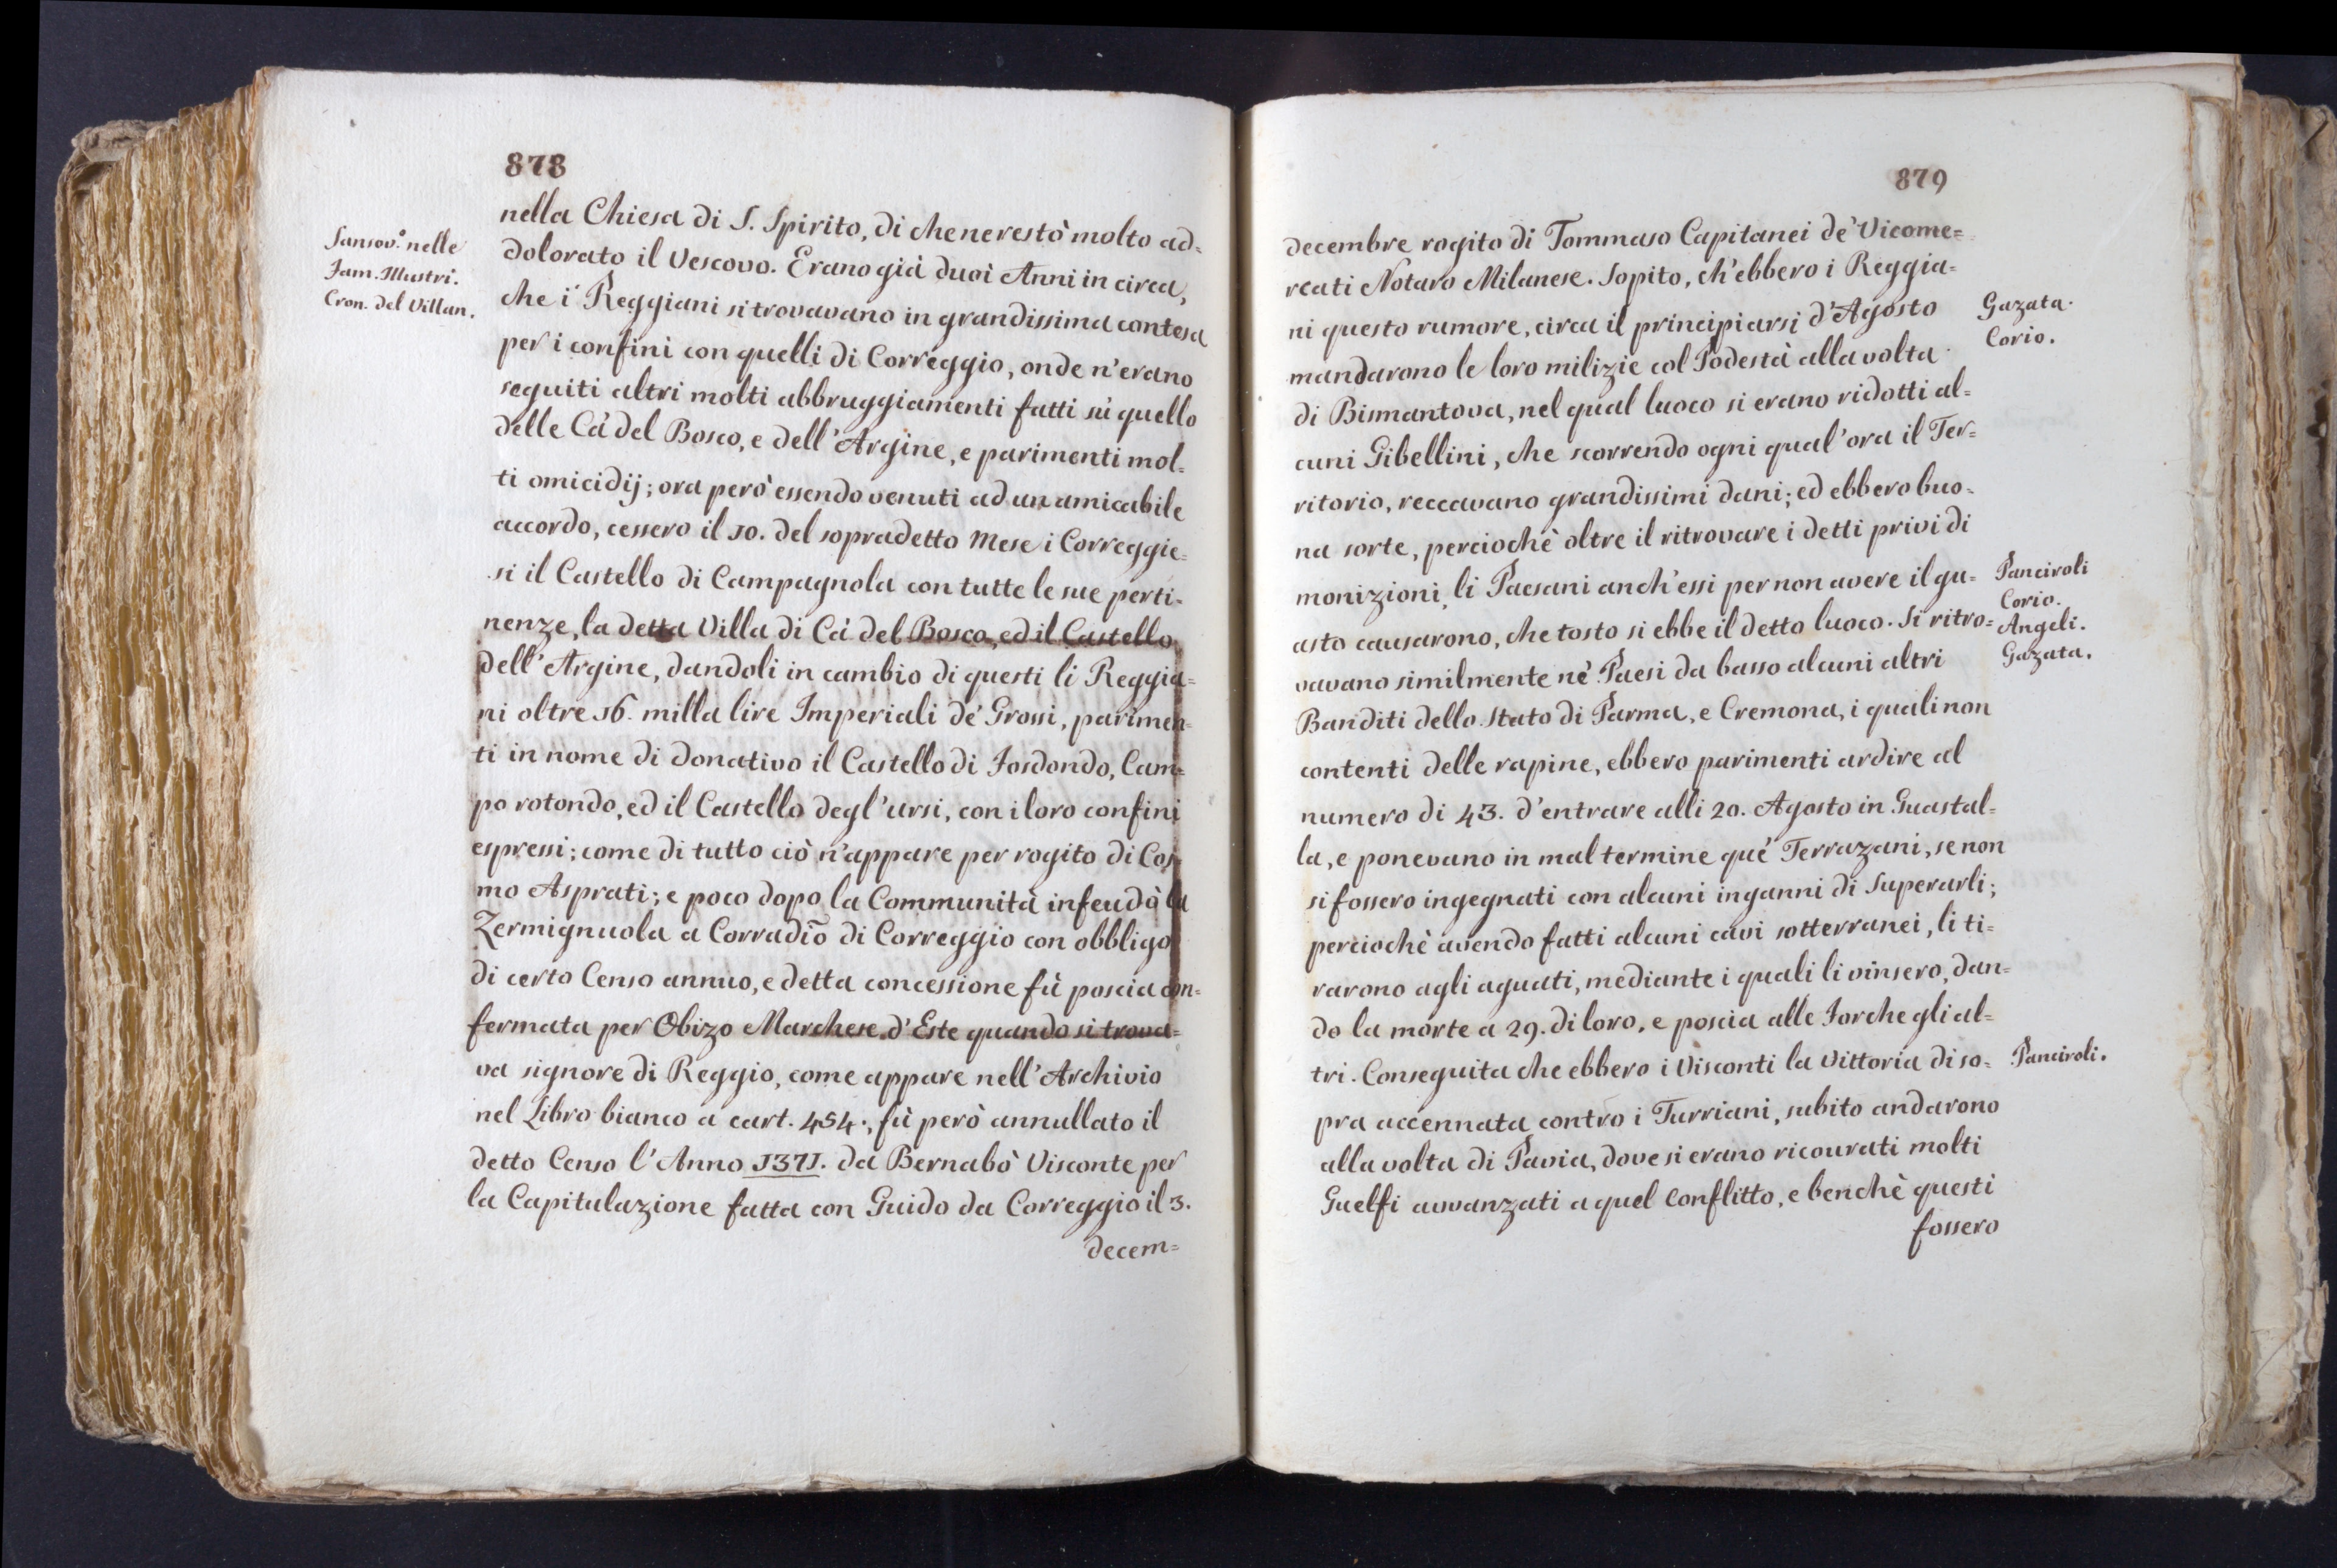 878
Sansov.º nelle
Fam. Illustri.
Cron. del Villan.
nella Chiesa di S. Spirito, di che ne restò molto ad=
dolorato il Vescovo. Erano già duoi Anni in circa,
che i Reggiani si trovavano in grandissima contesa
per i confini con quelli di Correggio, onde n'erano
seguiti altri molti abbruggiamenti fatti sù quello
delle Cà del Bosco, e dell'Argine, e parimenti mol=
ti omicidij; ora però essendo venuti ad un amicabile
accordo, cessero il 10. del sopradetto Mese i Correggie=
si il Castello di Campagnola con tutte le sue perti=
nenze, la detta Villa di Cà del Bosco, ed il Castello
dell'Argine, dandoli in cambio di questi li Reggia=
ni oltre 16. milla lire Imperiali de' Grossi, parimen=
ti in nome di donativo il Castello di Fosdondo, Cam=
po rotondo, ed il Castello degl'ursi, con i loro confini
espressi; come di tutto ciò n'appare per rogito di Cos=
mo Asprati; e poco dopo la Communità infeudà la
Zermignuola a Corradiõ di Correggio con obbligo
di certo Censo annuo, e detta concessione fù poscia con=
fermata per Obizo Marchese d'Este quando si trova=
va signore di Reggio, come appare nell'Archivio
nel Libro bianco a cart. 454., fù però annullato il
detto Censo l'Anno 1371. da Bernabò Visconte per
la Capitulazione fatta con Guido da Correggio il 3.
decem=
879
decembre rogito di Tommaso Capitanei de' Vicome=
rcati Notaro Milanese. Sopito, ch'ebbero i Reggia=
ni questo rumore, circa il principiarsi d'Agosto
mandarono le loro milizie col Podestà alla volta
di Bismantova, nel qual luoco si erano ridotti al=
cuni Gibellini, che scorrendo ogni qual'ora il Ter=
ritorio, reccavano grandissimi dani; ed ebbero buo=
na sorte, perciochè oltre il ritrovare i detti privi di
monizioni, li Paesani anch'essi per non avere il gu=
asto causarono, che tosto si ebbe il detto luoco. Si ritro=
vavano similmente ne' Paesi da basso alcuni altri
Banditi dello Stato di Parma, e Cremona, i quali non
contenti delle rapine, ebbero parimenti ardire al
numero di 43. d'entrare alli 20. Agosto in Guastal=
la, e ponevano in mal termine que' Terrazani, se non
si fossero ingegnati con alcuni inganni di Superarli;
perciochè avendo fatti alcuni cavi sotterranei, li ti=
rarono agli aguati, mediante i quali li vinsero, dan=
do la morte a 29. di loro, e poscia alle Forche gli al=
tri. Conseguita che ebbero i Visconti la Vittoria di so=
pra accennata contro i Turriani, subito andarono
alla volta di Pavia, dove si erano ricourati molti
Guelfi avvanzati a quel Conflitto, e benchè questi
fossero
Gazata.
Corio.
Panciroli
Corio.
Angeli.
Gazata.
Panciroli.